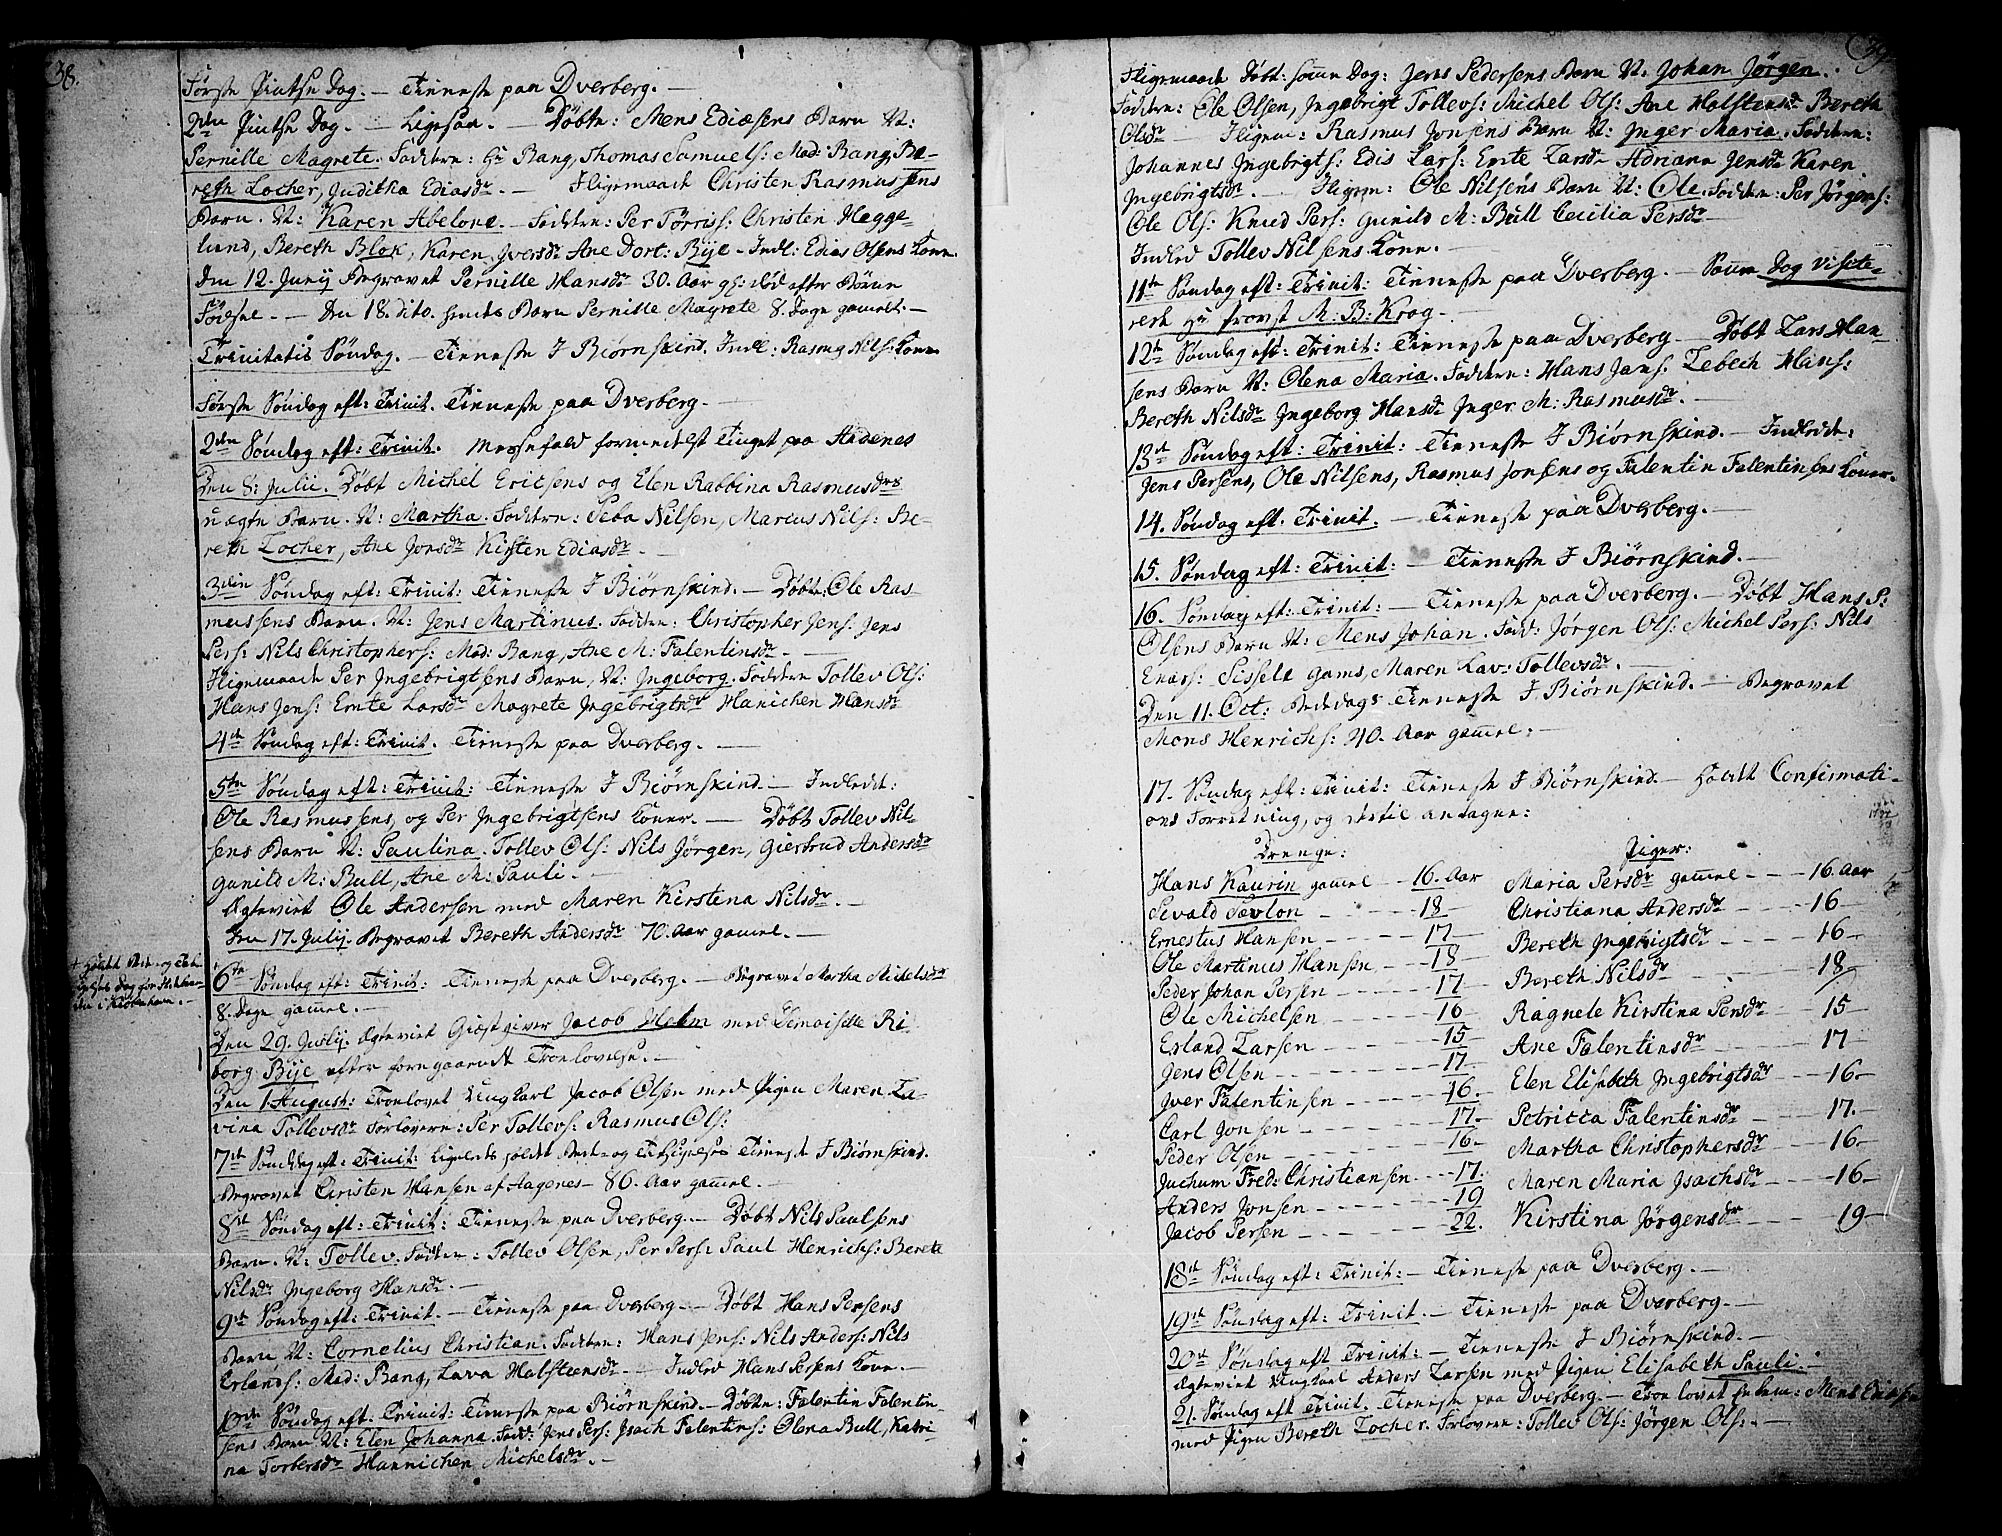 38.
Første Pintse Dag. — Tieneste paa Dverberg. —
2den Pintse Dag. — Ligesaa. — Døbte: Mens Ediæsens Barn N:
Pernille Magrete. Faddere: Hr Bang, Thomas Samuels: Mad: Bang, Be-
reth Locher, Juditha Ediasdr. — Iligemaade Christen Rasmussens
Barn. N: Karen Abelone. — Faddere: Per Tørriss: Christen Hegge-
lund, Bereth Blok, Karen Iversdr Ane Dort: Bye — Indl: Edias Olsens Kone.
Den 12. Junij Begravet Pernille Hansdr 30. Aar gl: død efter Barne
Fødsel. — Den 18. dito. hendes Barn Pernille Magrete 8. Dage gamelt. —
Trinitatis Søndag. — Tieneste I Biørnskind. Indl: Rasmus Nils: Kone
Første Søndag eft: Trinit. Tieneste paa Dverberg. —
2den Søndag eft: Trinit. Messefald formedelst Tinget paa Andenes
Den 8: Julii. Døbt Michel Ericsens og Elen Rabbina Rasmusdrs
uægte Barn. N: Martha. Faddere: Peba Nilsen, Marcus Nils: Be-
reth Locher, Ane Jonsdr Kirsten Ediasdr. —
3die Søndag eft: Trinit: Tieneste I Biørnskind. — Døbte: Ole Ras-
mussens Barn. N: Jens Martinus. Faddere: Christopher Jens: Jens
Pers: Nils Christophers: Mad: Bang, Ane M: Falentinsdr. —
Iligemaade Per Ingebrigtsens Barn, N: Ingeborg. Faddere Tollev Ols:
Hans Jens: Emte Larsdr Magrete Ingebrigtsdr Hanichen Hansdr
4de Søndag eft: Trinit. Tieneste paa Dverberg. —
5te Søndag eft: Trinit: Tieneste I Biørnskind. — Indledt:
Ole Rasmussens, og Per Ingebrigtsens Koner. — Døbt Tollev Nil-
sens Barn N: Paulina. Tollev Ols: Nils Jørgen, Giertrud Andersdr
Gunild M: Bull, Ane M: Pauli. —
Ægteviet Ole Andersen med Maren Kirstena Nilsdr. —
Den 17. Julij. Begravet Bereth Andersdr 70. Aar gamel. —
6te Søndag eft: Trinit: Tieneste paa Dverberg. — Begravet Martha Michelsdr
8. Dage gammel. —
Den 29. Julij. Ægteviet Giestgiver Jacob Holm med Demoiselle Ri-
borg Bye efter foregaaende Troelovelse. —
Den 1. August: Troelovet Ungkarl Jacob Olsen med Pigen Maren La-
vina Tollevsdr Forlovere: Per Tollevs: Rasmus Ols:
7de Søndag eft: Trinit: Ligeledes holdt Bede- og Taksigelses Tieneste I Biørnskind.
Begravet Christen Hansen af Aagenes — 86. Aar gamel. —
8de Søndag eft: Trinit: Tieneste paa Dverberg. — Døbt Nils Paulsens
Barn. N: Tollev. Faddere: Tollev Olsen, Per Pers: Paul Henrichs: Berete
Nilsdr Ingeborg Hansdr. —
9de Søndag eft: Trinit. — Tieneste paa Dverberg. — Døbt Hans Persens
Barn N: Cornelius Christian. Faddere: Hans Jens: Nils Anders: Nils
Erlands: Mad: Bang, Lava Halsteensdr. — Indled Hans Persens Kone. —
10de Søndag eft: Trinit: Tieneste paa Biørnskind. — Døbte: Falentin Falentin-
sens Barn N: Elen Johanna. Fadd: Jens Pers: Isach Falentins: Olena Bull, Katri-
na Torbersdr Hannichen Michelsdr. —
+ Holdt Bede og Tak-
sigelses Dag for
i Kiøbenhavn. —
39.
Iligemaade Døbt: samme Dag: Jens Pedersens Barn N: Johan Jörgen.
Faddere: Ole Olsen, Ingebrigt Tollevs: Michel Ols: Ane Halstensdr Bereth
Olsdr — Iligem: Rasmus Jonsens Barn N: Inger Maria. Faddere:
Johannes Ingebrigts: Edis Lars: Emte Larsdr Adriana Jensdr Karen
Ingebrigtsdr — Iligem: Ole Nilsens Barn N: Ole. Faddere: Per Jørgens:
Ole Ols: Knud Pers: Gunild M: Bull Cecilia Persdr —
Indled Tollev Nilsens Kone. —
11te Søndag eft: Trinit: Tieneste paa Dverberg. — Samme Dag visite-
rede Hr Provst M: B: Krog. —
12te Søndag eft: Trinit: Tieneste paa Dverberg — Døbt Lars Han-
sens Barn N: Olena Maria. Faddere: Hans Jans: Lebech Hans:
Bereth Nilsdr Ingeborg Hansdr Inger M: Rasmusdr. —
13de Søndag eft: Trinit: Tieneste I Biørnskind. — Indledde:
Jens Persens, Ole Nilsens, Rasmus Jonsens og Falentin Falentinsens Koner.
14. Søndag eft. Trinit. — Tieneste paa Dverberg. —
15. Søndag eft: Trinit: — Tieneste I Biørnskind. —
16. Søndag eft: Trinit: — Tieneste paa Dverberg. — Døbt Hans P:
Olsens Barn N: Mens Johan. Fadd: Jørgen Ols: Michel Pers: Nils
Enars: Sissele Gams, Maren Lav: Tollevsdr. —
Den 11. Oct: Bededags Tieneste I Biørnskind. — Begravet
Mons Henrichs: 40. Aar gammel. —
17. Søndag eft: Trinit: Tieneste I Biørnskind. — Holdt Confirmati-
ons Forretning, og dertil antagne:
Drenge: Piger:
Hans Kaurin gamel — 16. Aar Maria Persdr gamel — 16. Aar
Sivald Savlon — 18 Christiana Andersdr — 16
Ernestus Hansen — 17 Bereth Ingebrigtsdr — 16
Ole Martinus Hansen — 18 Bereth Nilsdr — 18
Peder Johan Persen — 17 Ragnele Kirstina Persdr — 15
Ole Michelsen — 16 Ane Falentinsdr — 17
Erland Larsen — 15 Elen Elisabeth Ingebrigtsdr — 16
Jens Olsen — 17 Petricca Falentinsdr — 17.
Iver Falentinsen — 16. Martha Christophersdr — 16
Carl Jonsen — 17. Maren Maria Isachsdr — 16
Peder Olsen — 16 Kirstina Jørgensdr — 19
Jachum Fred: Christiansen — 17.
Anders Jonsen — 19
Jacob Persen — 22.
18de Søndag eft: Trinit: — Tieneste paa Dverberg. —
19de Søndag eft: Trinit. — Tieneste paa Dverberg. —
20de Søndag eft Trinit: — Tieneste I Biørnskind. —
Ægteviet Ungkarl Anders Larsen med Pigen Elisabeth Pauli. —
21. Søndag eft Trinit. Tieneste paa Dverberg. — Troelovet Mens Ediæsen
med Pigen Bereth Locher. Forlovere: Tollev Ols: Jørgen Ols: —